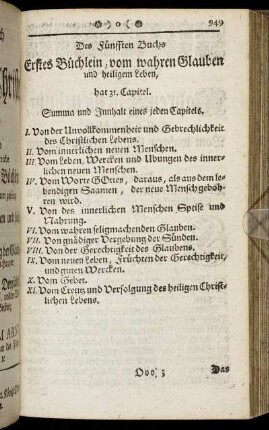 949
Des Fünfften Buchs
Erstes Büchlein, vom wahren Glauben
und heiligem Leben,
hat 11. Capitel.
Summa und Innhalt eines jeden Capitels.
I. Von der Unvollkommenheit und Gebrechlichkeit
des Christlichen Lebens.
II. Vom innerlichen neuen Menschen.
III. Vom Leben, Wercken und Ubungen des inner-
lichen neuen Menschen.
IV. Vom Worte GOttes, daraus, als aus dem le-
bendigen Saamen, der neue Mensch gebohr-
ren wird.
V. Von des innerlichen Menschen Speise und
Nahrung.
VI. Vom wahren seligmachenden Glauben.
VII. Von gnädiger Vergebung der Sünden.
VIII. Von der Gerechtigkeit des Glaubens.
IX. Vom neuen Leben, Früchten der Gerechtigkeit,
und guten Wercken.
X. Vom Gebet.
XI. Vom Creutz und Verfolgung des heiligen Christ-
lichen Lebens.
Ooo 3 Das